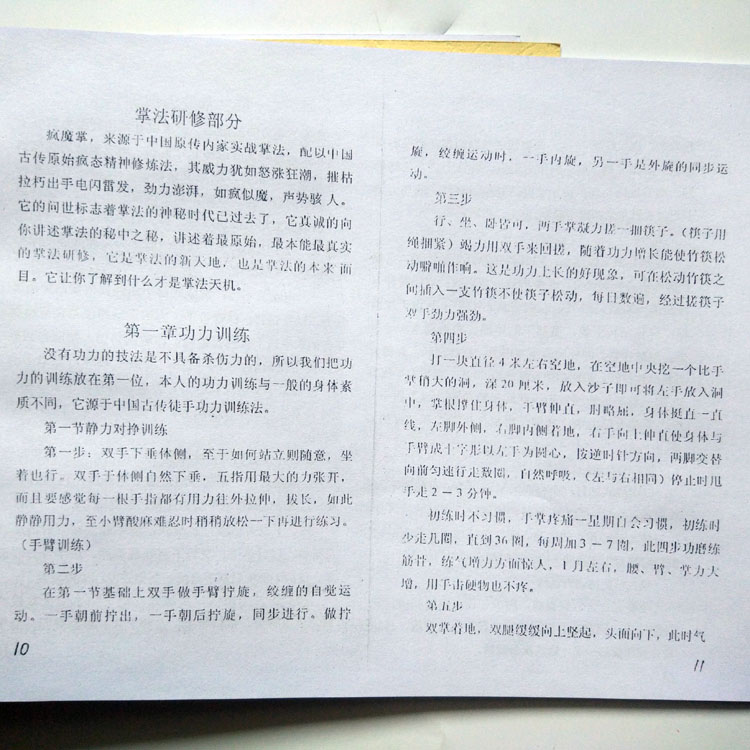 掌法研修部分
疯魔掌，来源于中国原传内家实战掌法，配以中国
古传原始疯态精神修炼法，其威力犹如怒涨狂潮，摧枯
拉朽出手电闪雷发，劲力澎湃，如疯似魔，声势骇人。
它的问世标志着掌法的神秘时代已过去了，它真诚的向
你讲述掌法的秘中之秘，讲述着最原始，最本能最真实
的掌法研修，它是掌法的新天地，也是掌法的本来面
目。它让你了解到什么才是掌法天机。
第一章功力训练
没有功力的技法是不具备杀伤力的，所以我们把功
力的训练放在第一位，本人的功力训练与一般的身体素
质不同，它源于中国古传徒手功力训练法。
第一节静力对挣训练
第一步：双手下垂体侧，至于如何站立则随意，坐
着也行。双手于体侧自然下垂，五指用最大的力张开，
而且要感觉每一根手指都有用力往外拉伸，拔长，如此
静静用力，至小臂酸麻难忍时稍稍放松一下再进行练习。
（手臂训练）
第二步
在第一节基础上双手做手臂拧旋，绞缠的自觉运
动。一手朝前拧出，一手朝后拧旋，同步进行。做拧
10
旋，绞缠运动时，一手内旋，另一手是外旋的同步运
动。
第三步
行、坐、卧皆可，两手掌凝力搓一捆筷子。（筷子用
绳捆紧）竭力用双手来回搓，随着功力增长能使竹筷松
动噼啪作响。这是功力上长的好现象，可在松动竹筷之
间插入一支竹筷不使筷子松动，每日数遍，经过搓筷子
双手劲力强劲。
第四步
打一块直径4米左右空地，在空地中央挖一个比手
掌稍大的洞，深20厘米，放入沙子即可将左手放入洞
中，掌根撑住身体，手臂伸直，肘略屈，身体挺直一直
线，左脚外侧，右脚内侧着地，右手向上伸直使身体与
手臂成十字形以左手为圆心，按逆时针方向，两脚交替
向前匀速行走数圈，自然呼吸，（左与右相同）停止时甩
手走2－3分钟。
初练时不习惯，手掌疼痛一星期自会习惯，初练时
少走几圈，直到36圈，每周加3－7圈，此四步功磨练
筋骨，练气增力方面惊人，1月左右，腰、臂、掌力大
增，用手击硬物也不疼。
第五步
双掌着地，双腿缓缓向上竖起，头面向下，此时气
11